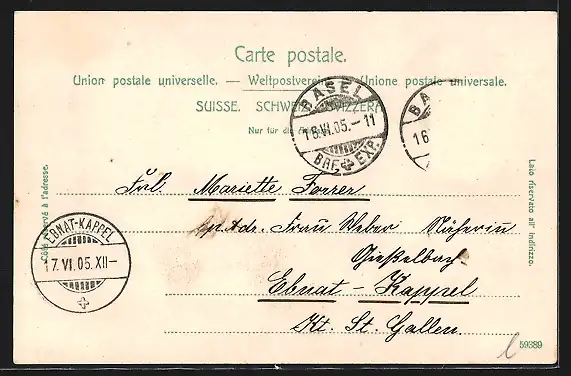 Carte postale.
Union postale universelle. — Weltpostverein — Unione postale universale.
SUISSE. SCHWEIZ. SVIZZERA
Nur für die
BASEL
16.VI.05.-11
BRF. EXP.
BA
16
Côté réservé à l'adresse.
Lato riservato all' indirizzo.
Frl. Mariette Forrer
p. Adr. Frau Weber Näherin
Gießelbach
Ebnat - Kappel
Kt. St. Gallen.
EBNAT-KAPPEL
17.VI.05.XII-
59389